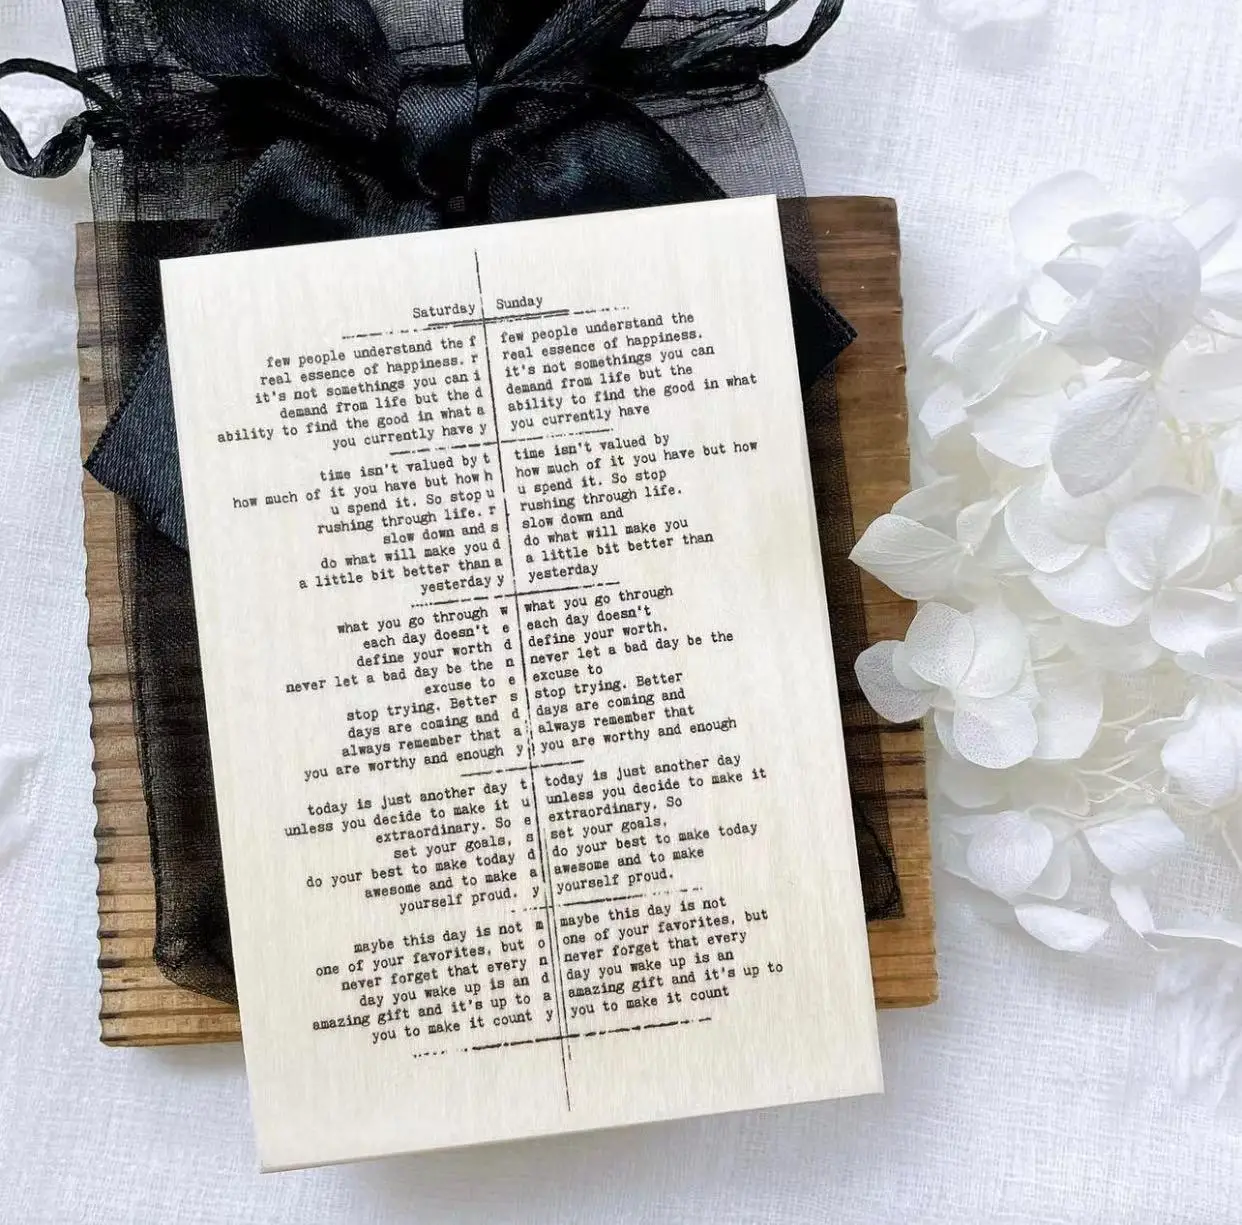 Saturday Sunday
few people understand the f
real essence of happiness. r
it's not somethings you can i
demand from life but the d
ability to find the good in what a
you currently have y
time isn't valued by t
how much of it you have but how h
u spend it. So stop u
rushing through life. r
slow down and s
do what will make you d
a little bit better than a
yesterday y
what you go through w
each day doesn't e
define your worth d
never let a bad day be the n
excuse to e
stop trying. Better s
days are coming and d
always remember that a
you are worthy and enough y
today is just another day t
unless you decide to make it u
extraordinary. So e
set your goals, s
do your best to make today d
awesome and to make a
yourself proud. y
maybe this day is not m
one of your favorites, but o
never forget that every n
day you wake up is an d
amazing gift and it's up to a
you to make it count y
few people understand the
real essence of happiness.
it's not somethings you can
demand from life but the
ability to find the good in what
you currently have
time isn't valued by
how much of it you have but how
u spend it. So stop
rushing through life.
slow down and
do what will make you
a little bit better than
yesterday
what you go through
each day doesn't
define your worth.
never let a bad day be the
excuse to
stop trying. Better
days are coming and
always remember that
you are worthy and enough
today is just another day
unless you decide to make it
extraordinary. So
set your goals,
do your best to make today
awesome and to make
yourself proud.
maybe this day is not
one of your favorites, but
never forget that every
day you wake up is an
amazing gift and it's up to
you to make it count